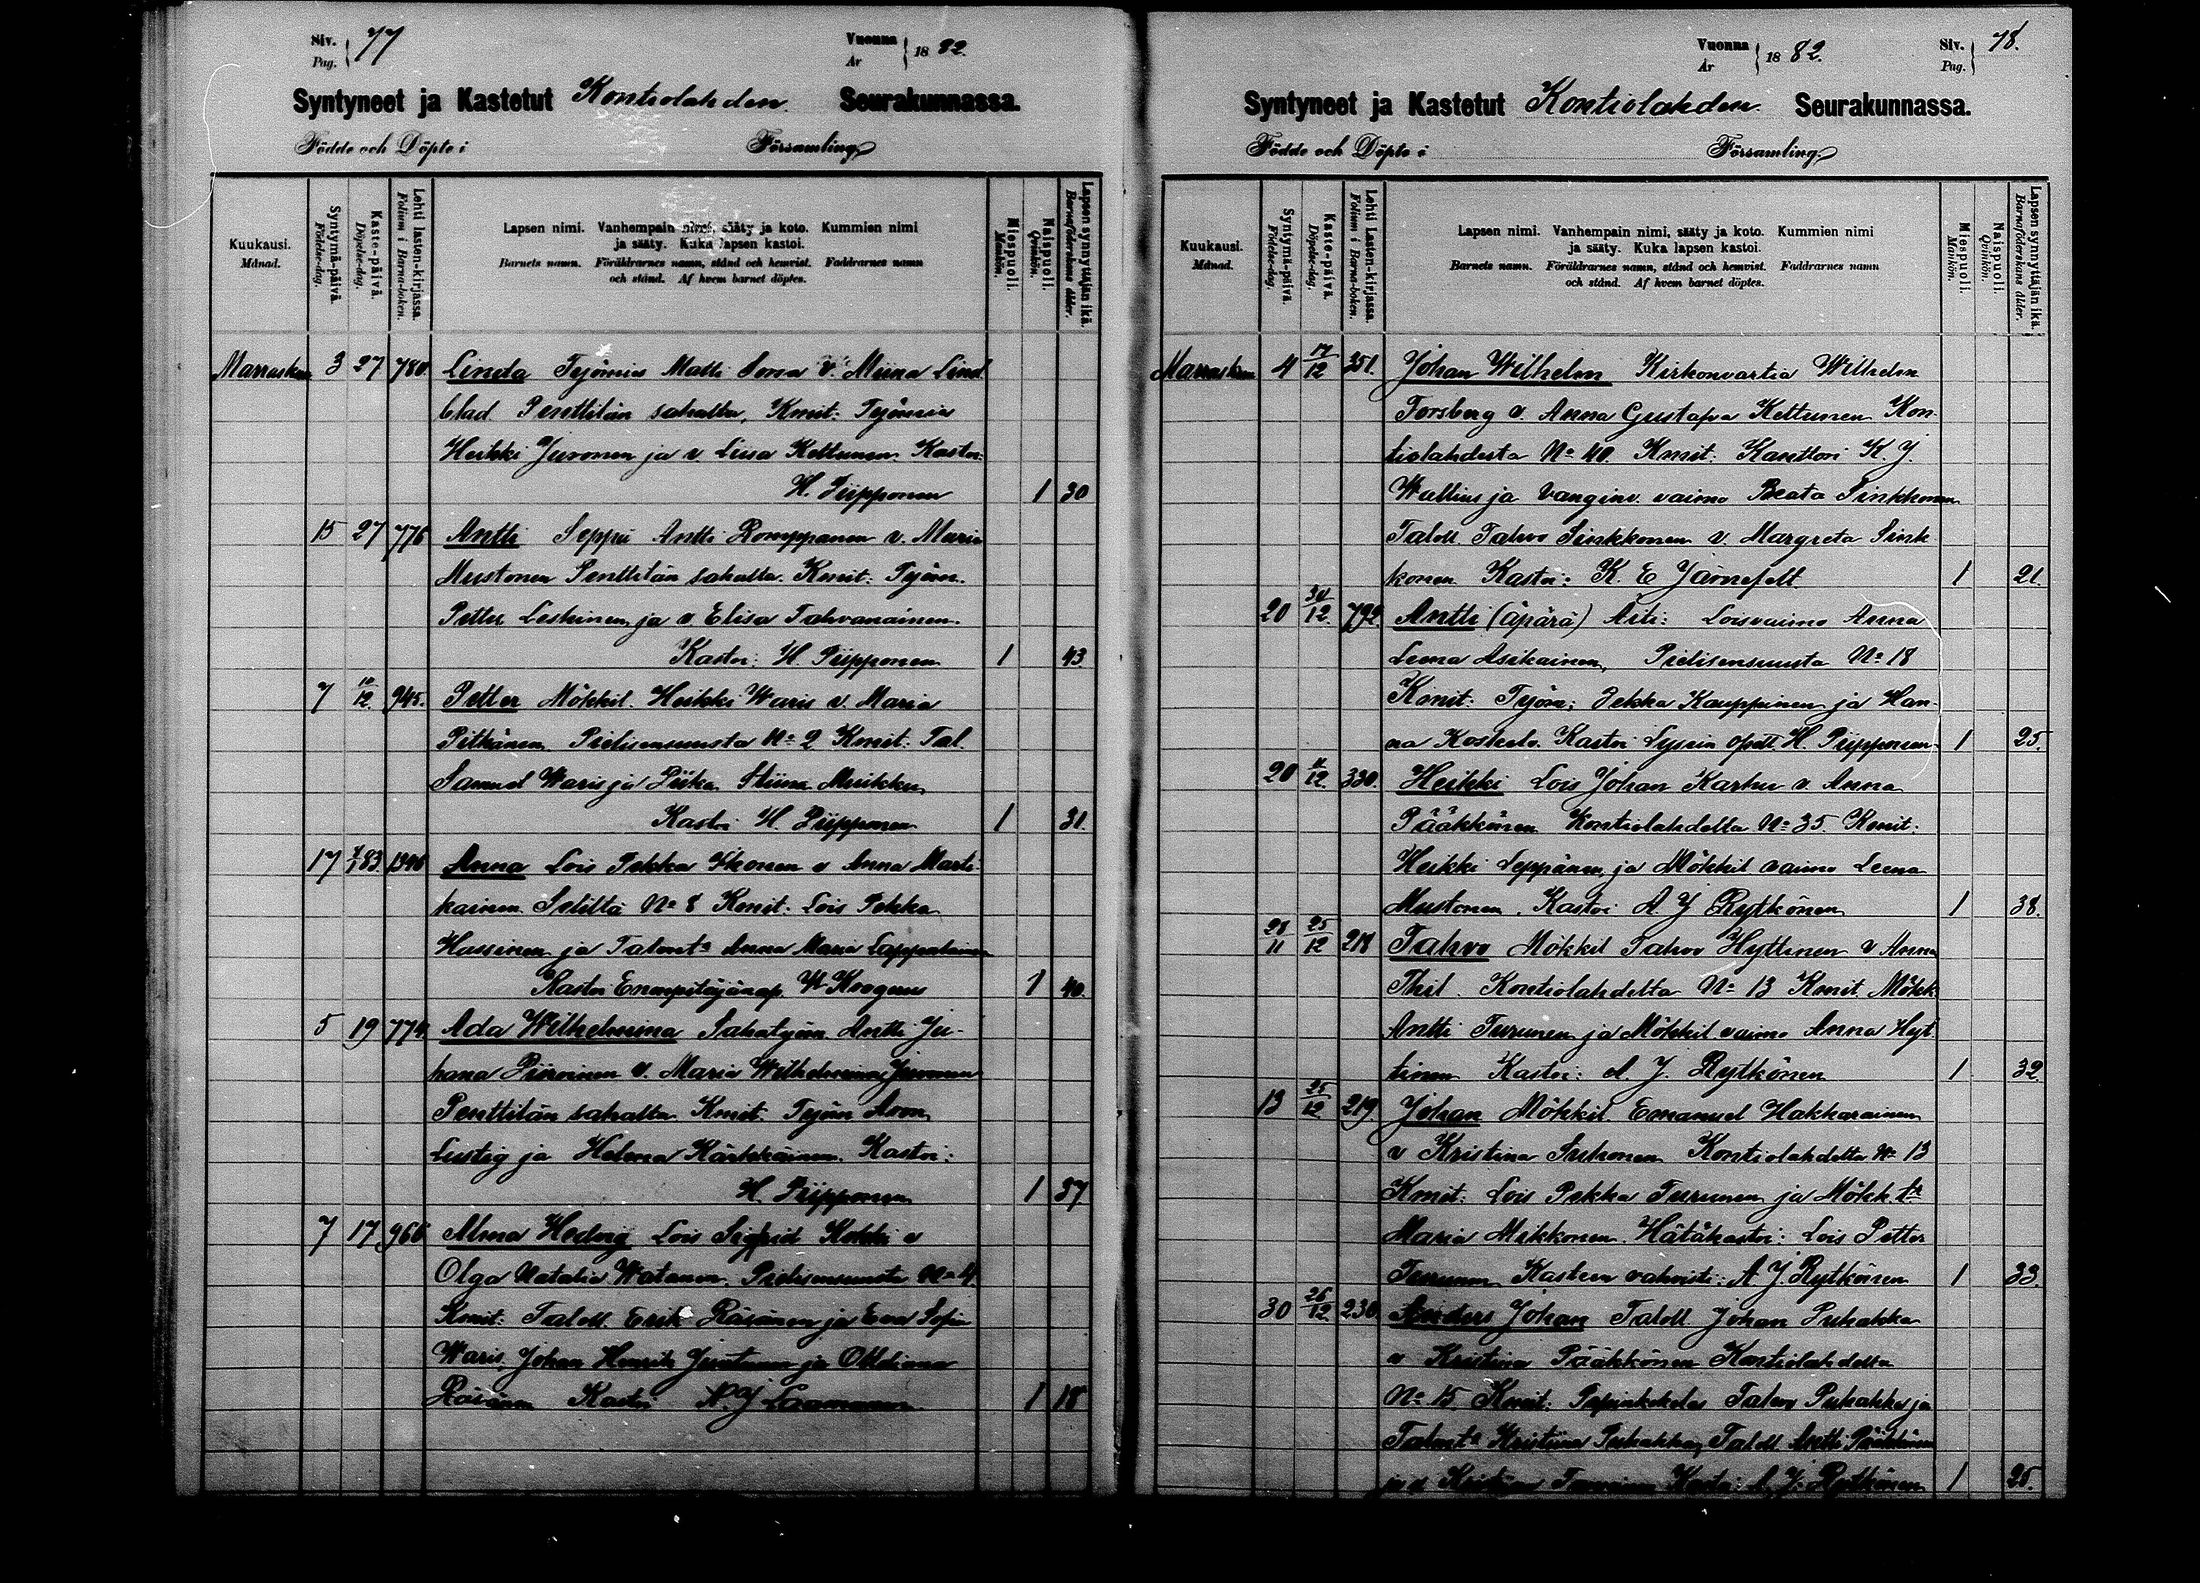 Siv. Pag. 77 Vuonna År 1882.
Syntyneet ja Kastetut Kontiolahden Seurakunnassa.
Födde och Döpte i Församling.
Kuukausi. Månad.
Syntymä-päivä. Födelse-dag.
Kaste-päivä. Döpelse-dag.
Lehti lasten-kirjassa. Folium i Barna-boken.
Lapsen nimi. Vanhempain nimi, sääty ja koto. Kummien nimi
ja sääty. Kuka lapsen kastoi.
Barnets namn. Föräldrarnes namn, stånd och hemvist. Faddrarnes namn
och stånd. Af hvem barnet döptes.
Miespuoli. Mankön.
Naispuoli. Qvinkön.
Lapsen synnyttäjän ikä. Barnaföderskans ålder.
Marraskuu 3 27 780 Linda Työmies Matti v. Miina Lind
blad Penttilän sahalta, Kmit: Työmies
Heikki Juvonen ja v Liisa Kettunen. Kastoi:
H. Piipponen 1 30
15 27 776 Antti Seppä Antti Romppanen v. Maria
Mustonen Penttilän sahalta. Kmit: Työm.
Petter Leskinen ja v. Elisa Tahvanainen.
Kastoi: H. Piipponen 1 43
7 10/12. 945. Petter Mökkil. Heikki Waris v. Maria
Pitkänen Pielisensuusta No 2 Kmit: Tal.
Samuel Waris ja Piika Stiina Murikka
Kastoi H. Piipponen 1 31.
17 83 Anna Lois Pekka Ikonen v Anna Marti
kainen Seliltä No 8 Kmit: Lois Pekka
Hassinen ja Talont. Anna Maria Lappalainen
Kastoi W Krogerus 1 40.
5 19 774. Ada Wilhelmina Sahatyöm. Antti Ju-
hana Piiroinen v. Maria Wilhelmina Juvonen
Penttilän sahalta Kmit: Työm Aron
Lustig ja Helena Kärkkäinen. Kastoi:
H. Piipponen 1 37
7 17 966 Alma Hedvig Lois Sigfrid Kokki v
Olga Natalia Watanen Pielisensuusta No 4
Kmit: Taloll. Erik Räsänen ja Eva Sofia
Waris, Johan Henrik Juntunen ja Ottiliana
Räsänen Kastoi 1 18
Vuonna År 1882. Siv. Pag. 78.
Syntyneet ja Kastetut Kontiolahden Seurakunnassa.
Födde och Döpte i Församling.
Kuukausi. Månad.
Syntymä-päivä. Födelse-dag.
Kaste-päivä. Döpelse-dag.
Lehti Lasten-kirjassa. Folium i Barna-boken.
Lapsen nimi. Vanhempain nimi, sääty ja koto. Kummien nimi
ja sääty. Kuka lapsen kastoi.
Barnets namn. Föräldrarnes namn, stånd och hemvist. Faddrarnes namn
och stånd. Af hvem barnet döptes.
Miespuoli. Mankön.
Naispuoli. Qvinkön.
Lapsen synnyttäjän ikä. Barnaföderskans ålder.
Marraskuu 4 17/12 351. Johan Wilhelm Kirkonvartia Wilhelm
Forsberg v. Anna Gustava Kettunen Kon-
tiolahdesta No 40. Kmit: Kanttori K. J.
Wallius ja Vanginv. vaimo Beata Sinkkonen
Taloll. Tahvo Sinkkonen v. Margreta Sink
konen Kastoi: K. E Järnefelt 1 21.
20 30/12. 792 Antti (äpärä) Äiti: Loisvaimo Anna
Leena Asikainen, Pielisensuusta No 18
Kmit: Työm: Pekka Kauppinen ja Han-
na Koskelo. Kastoi Lysein opett. H. Piipponen 1 25.
20 12. 330. Heikki Lois Johan Karhu v. Anna
Pääkkönen Kontiolahdelta No 35. Kmit:
Heikki Leppänen ja Mökkil vaimo Leena
Mustonen. Kastoi A. J Rytkönen 1 38.
28/11 25/12 218 Tahvo Mökkil Tahvo Hyttinen v Anna
Kontiolahdelta No 13 Kmit. Mökk.
Antti Turunen ja Mökkil. vaimo Anna Hyt-
tinen Kastoi: A. J. Rytkönen 1 32.
13 25/12 219 Johan Mökkil. Emanuel Hakkarainen
v Kristina Kontiolahdelta No 13
Kmit: Lois Pekka Turunen ja Mökk. tr
Maria Mikkonen. Hätäkastoi: Lois Petter
Turunen Kasteen vahvisti: A. J. Rytkönen 1 33.
30 26/12. 230. Anders Johan Taloll Johan Puhakka
v Kristina Pääkkönen Kontiolahdelta
No 15. Kmit: Tahvo Puhakka ja
Talont. Kristiina Puhakka, Taloll. Antti Pääkkönen
ja v Kristina Kastoi: A. J. Rytkönen 1 25.